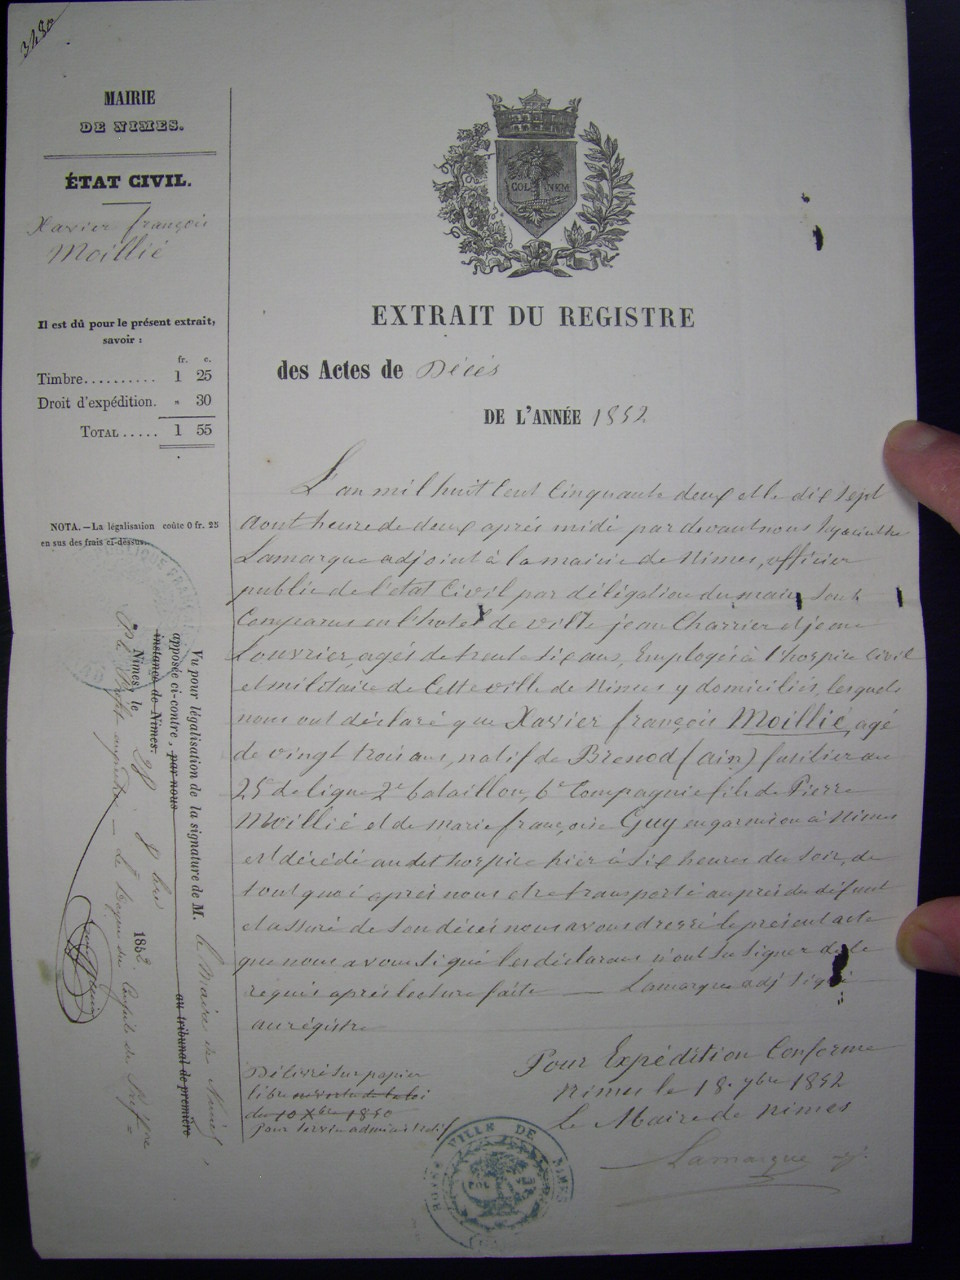 3480
MAIRIE
DE NIMES.
ÉTAT CIVIL.
Xavier françois
Moillié
Il est dû pour le présent extrait,
savoir :
fr. c.
Timbre.......... 1 25
Droit d'expédition. " 30
TOTAL ..... 1 55
NOTA. — La légalisation coûte 0 fr. 25
en sus des frais ci-dessus.
COL NEM
EXTRAIT DU REGISTRE
des Actes de Décès
DE L'ANNÉE 1852
L'an mil huit cent cinquante deux et le dix sept
aout heure de deux après midi par devant nous hyacinthe
Lamarque adjoint à la mairie de Nimes, officier
public de l'état civil par délégation du maire sont
comparus en l'hotel de ville jean Charrier et jeome
Louvrier, agés de trente six ans, Employés à l'hospice civil
et militaire de cette ville de Nimes y domiciliés, lesquels
nous ont déclaré que Xavier françois Moillié, agé
de vingt trois ans, natif de Brenod (ain) fusilier au
25 de ligne 2e bataillon, 6e Compagnie fils de Pierre
Moillié et de marie françoise Guy en garnison à Nimes
est décédé au dit hospice hier à six heures du soir, de
tout quoi après nous etre transporté auprès du défunt
et assuré de son décès nous avons dressé le présent acte
que nous avons signé les déclarans n'ont su signer de ce
requis après lecture faite — Lamarque adj signé
au régistre
Délivré sur papier
libre
du 10 Xbre 1850
pour servir administratif
Pour Expédition Conforme
Nimes le 18 7bre 1852
Le Maire de Nimes
Lamarque
VILLE DE NIMES
Vu pour légalisation de la signature de M. le Maire de Nimes
apposée ci-contre, par nous au tribunal de première
instance de Nimes.
Nimes, le 28 7bre 1852.